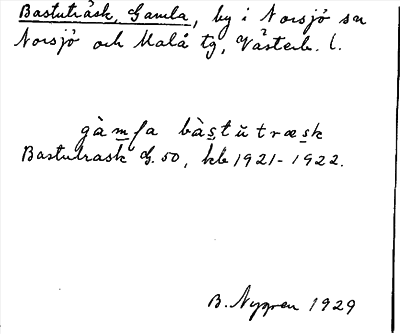 Bastuträsk, Gamla, by i Norsjö sn
Norsjö och Malå tg, Västerb. l.
gàmla bàstŭtræsk
Bastutrask G. 50, kb 1921-1922.
B. Nygren 1929